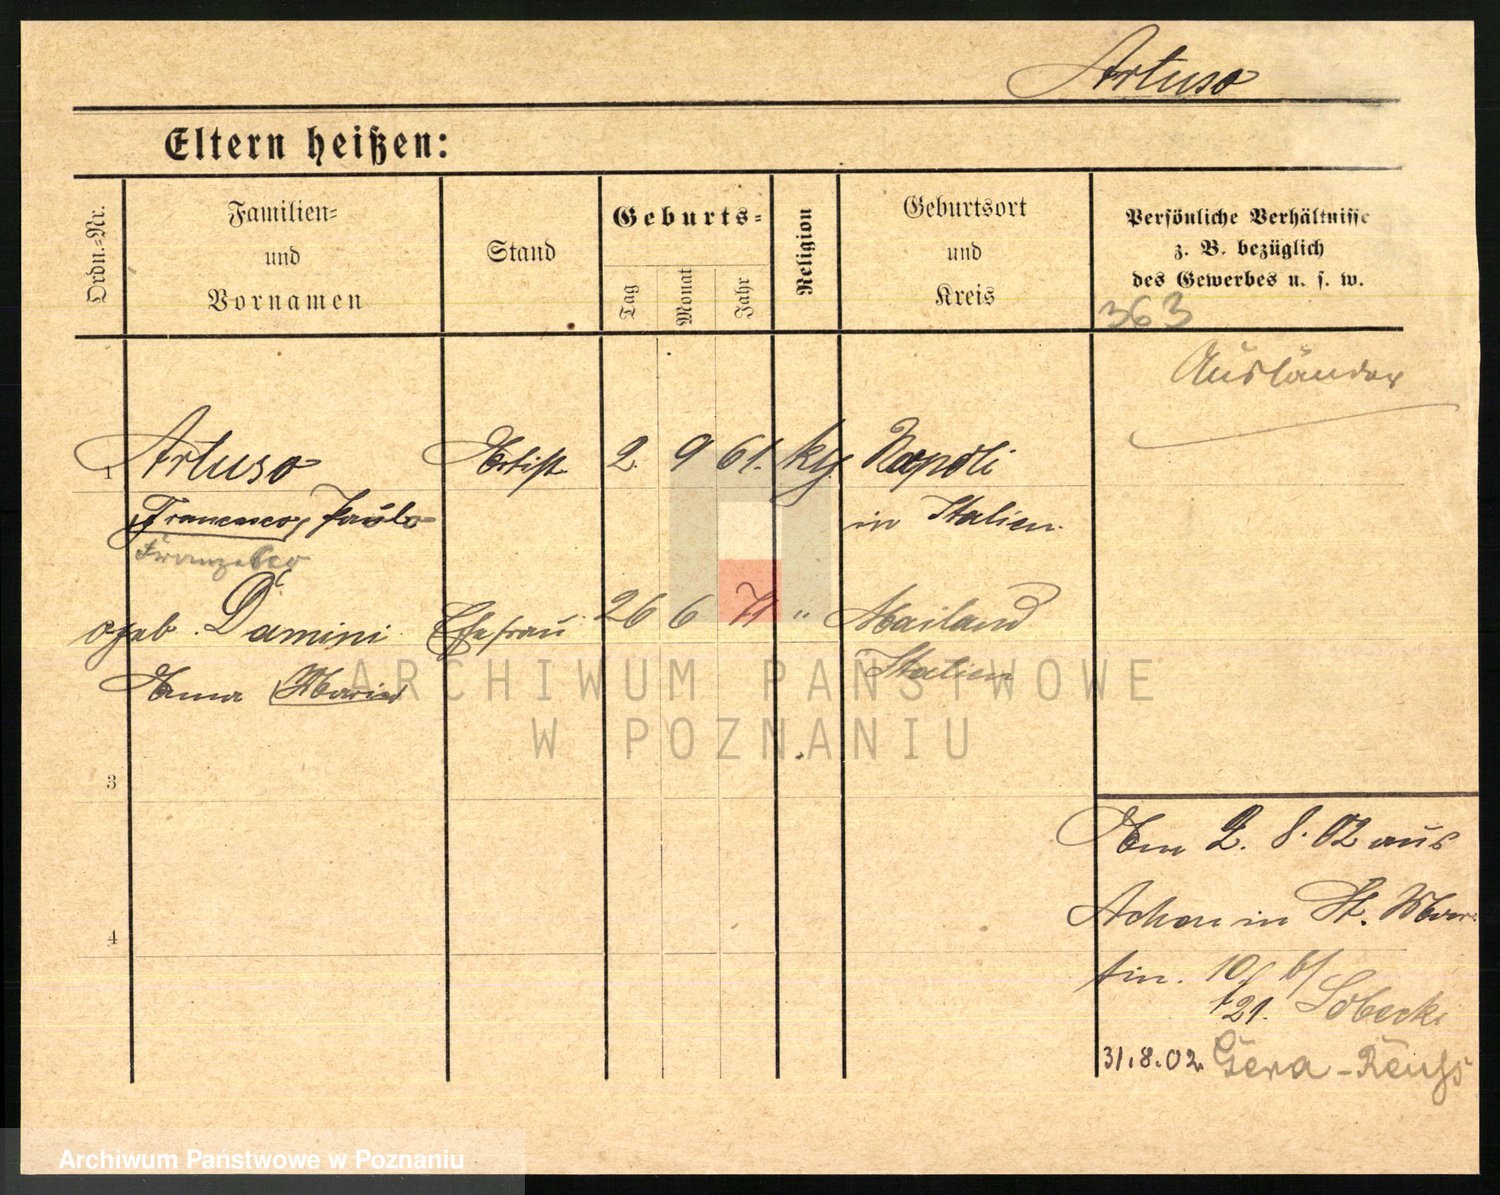 Artuso
Eltern heißen:
Ordn.=Nr.
Familien=
und
Vornamen
Stand
Geburts=
Tag
Monat
Jahr
Religion
Geburtsort
und
Kreis
Persönliche Verhältnisse
z. B. bezüglich
des Gewerbes u. s. w.
363
Ausländer
1 Artuso Artist 2. 9 61. Napoli
Francesco, Paulo in Italien
geb. Damini Ehefrau 26 6 71 " Mailand
Anna Maria Italien
ARCHIWUM PAŃSTWOWE
W POZNANIU
3
4
Am 2. 8. 02 aus
in St. Mar
tin. 10 b/
Sobecki
31.8.02. Gera-Reuß
Archiwum Państwowe w Poznaniu